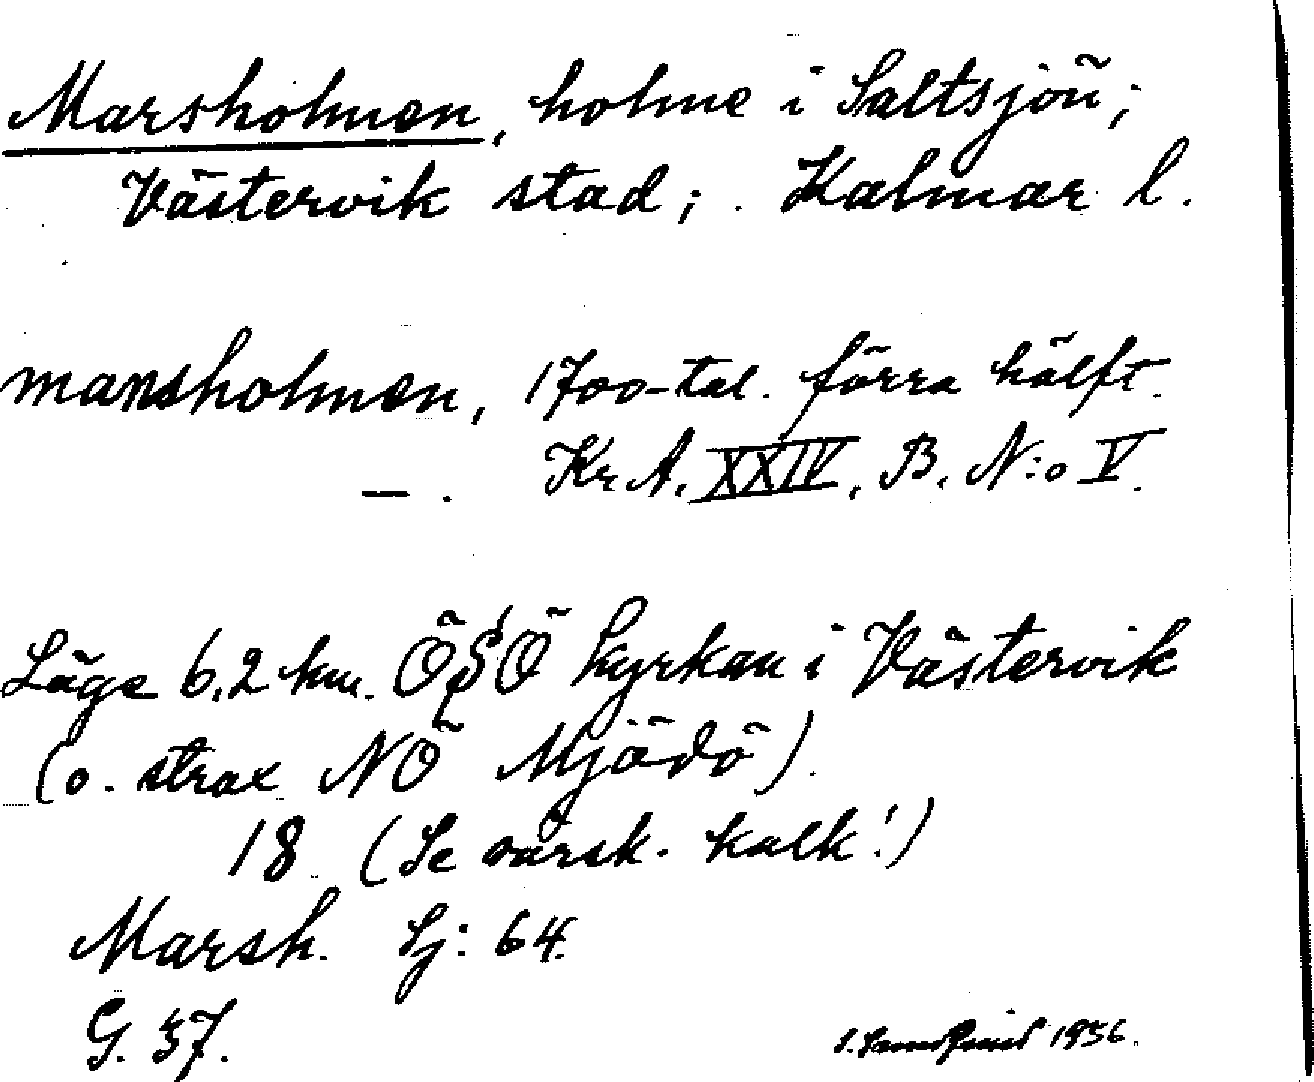 Marsholmen, holme i Saltsjön;
Västervik stad; Kalmar l.
marsholmen, 1700-tal. förra hälft.
—. Kr A. XXIV, B. N:o V.
Läge 6,2 km. ÖSÖ kyrkan i Västervik
(o. strax NÖ Mjödö).
18 (Se särsk. kalk!)
Marsh. Sj: 64.
G. 37.
1936.